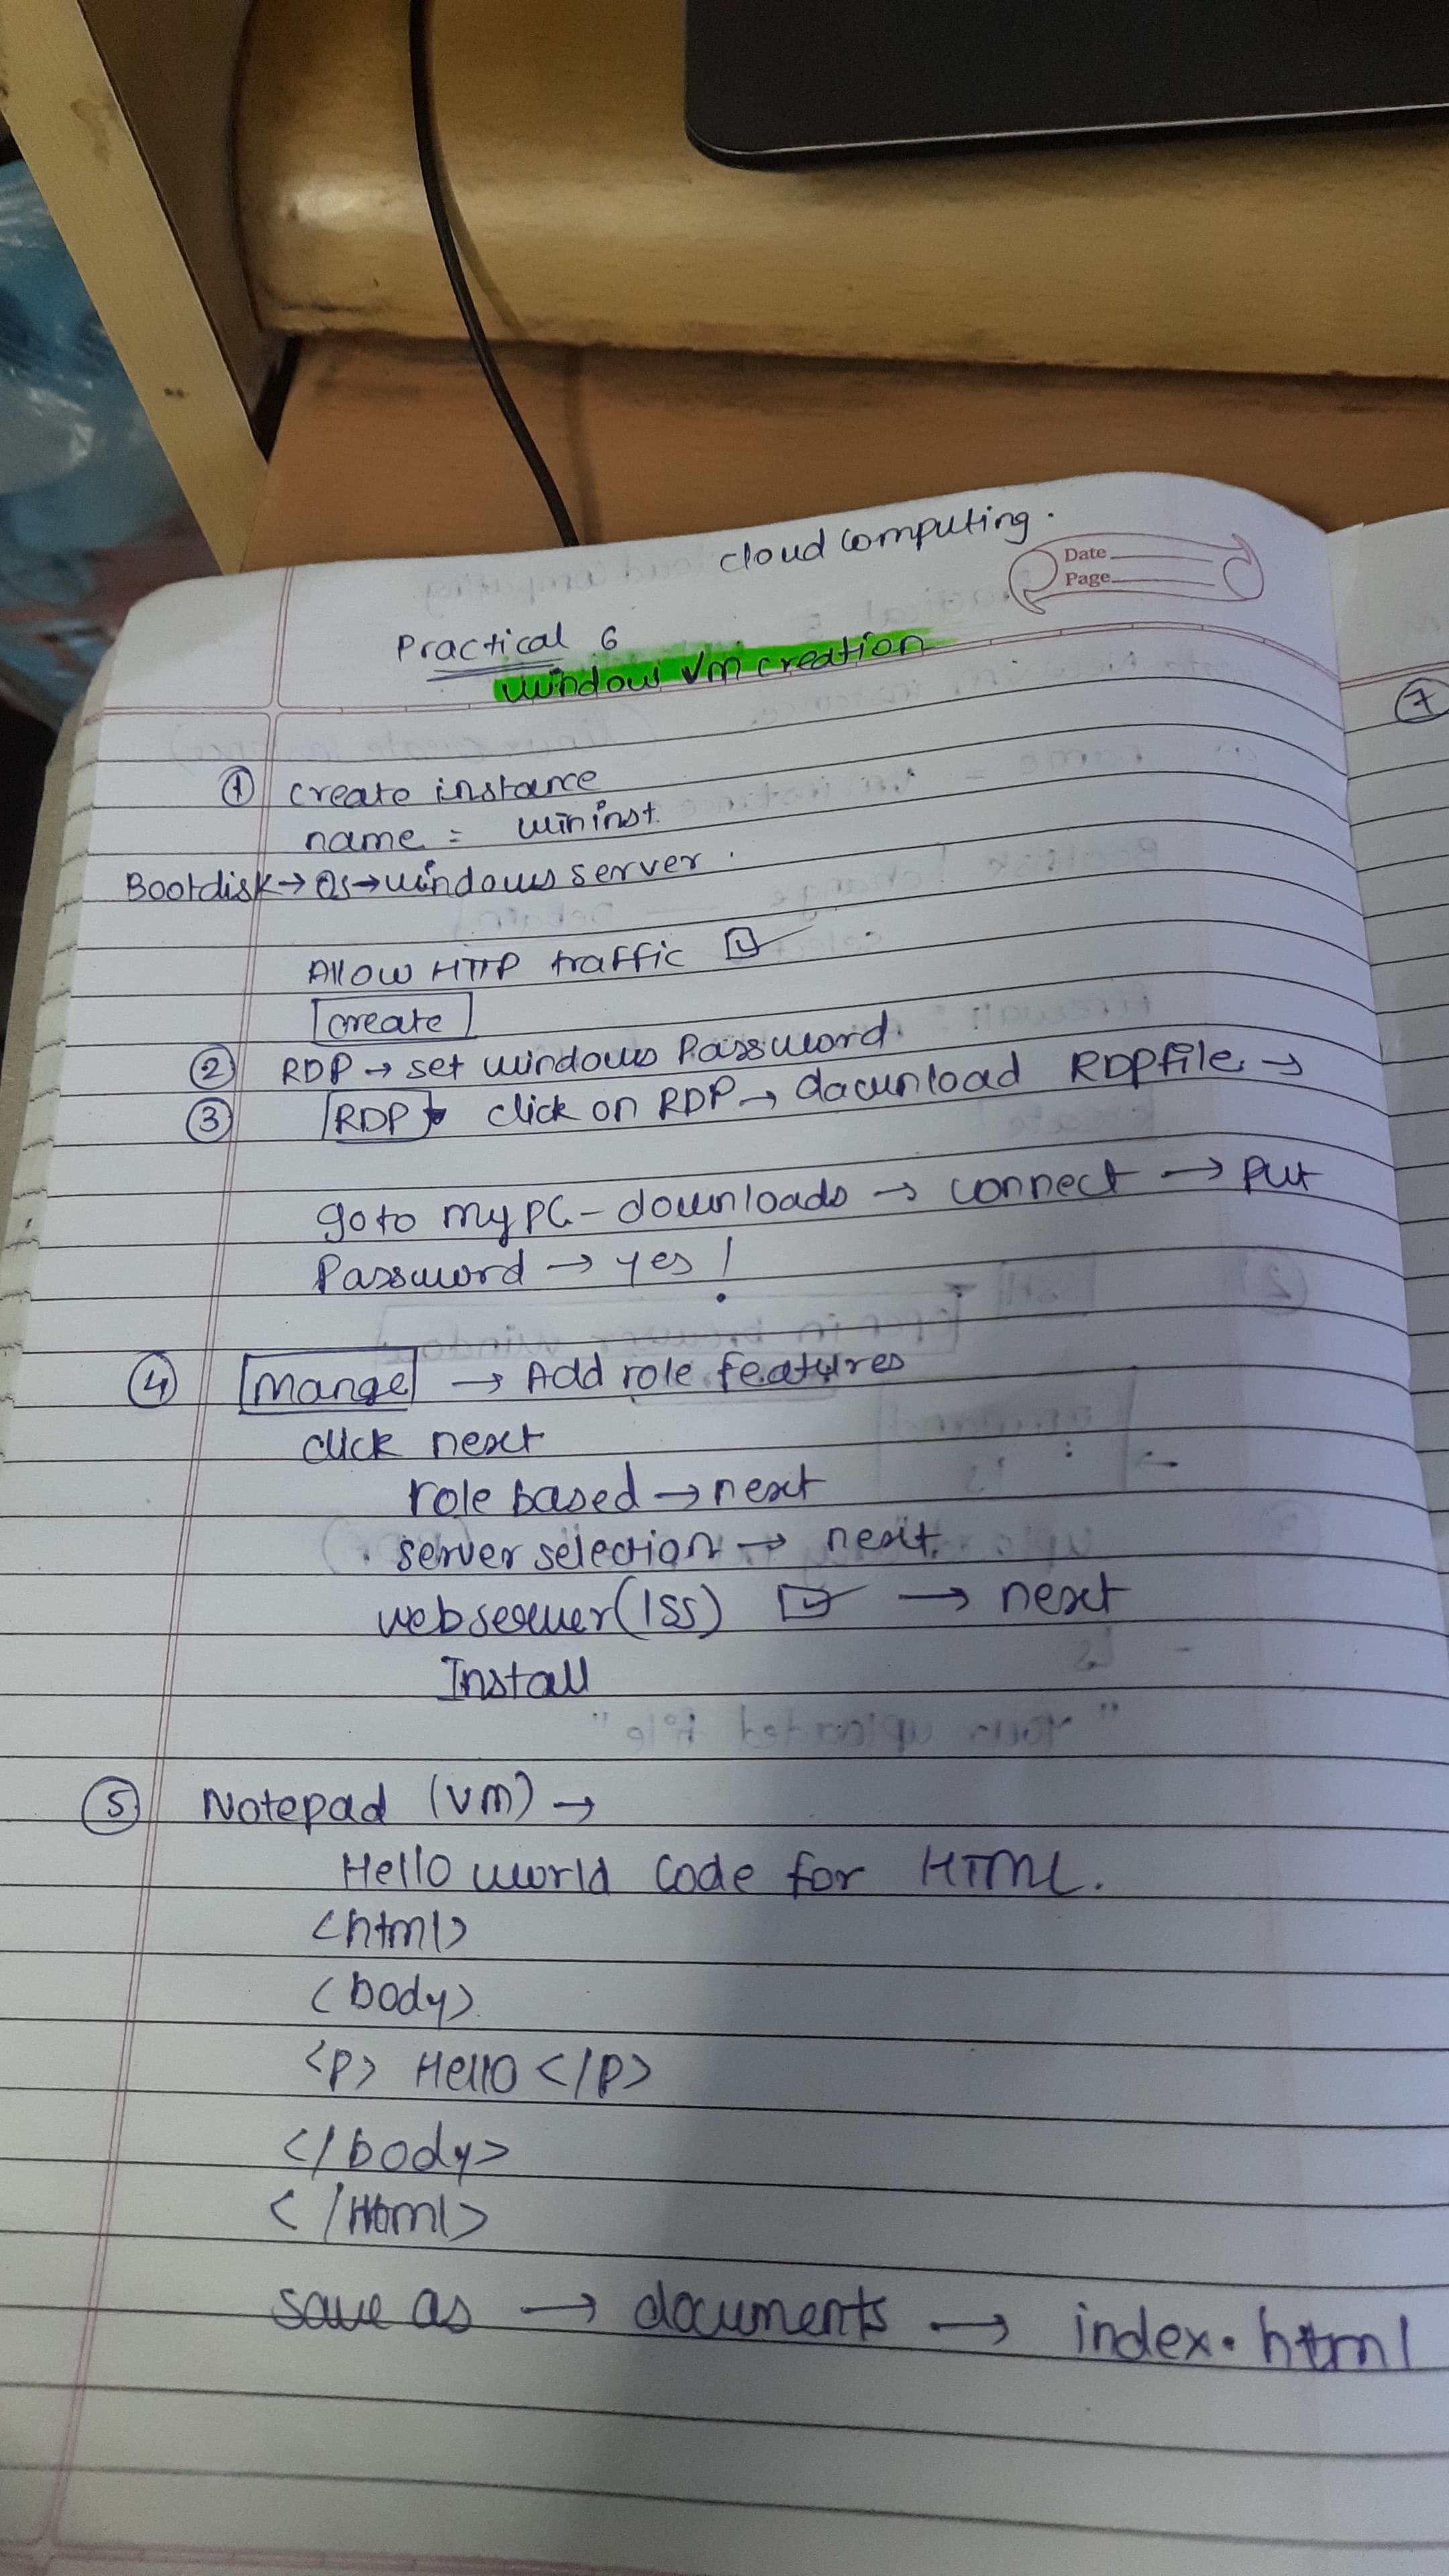 cloud computing.
Date
Page
Practical 6
window vm creation
① create instance
name = wininst.
Bootdisk → OS → windows server.
Allow HTTP traffic ☑
create
② RDP → set windows Password.
③ RDP click on RDP → dacunload RDPfile →
goto my PC - downloads → connect → put
Password → yes !
④ Mange → Add role features
click next
role based → next
server selection → next.
webserver (ISS) ☑ → next
Install
⑤ Notepad (VM) →
Hello world code for HTML.
<html>
<body>
<P> Hello </P>
</body>
</Html>
save as → documents → index.html
⑦